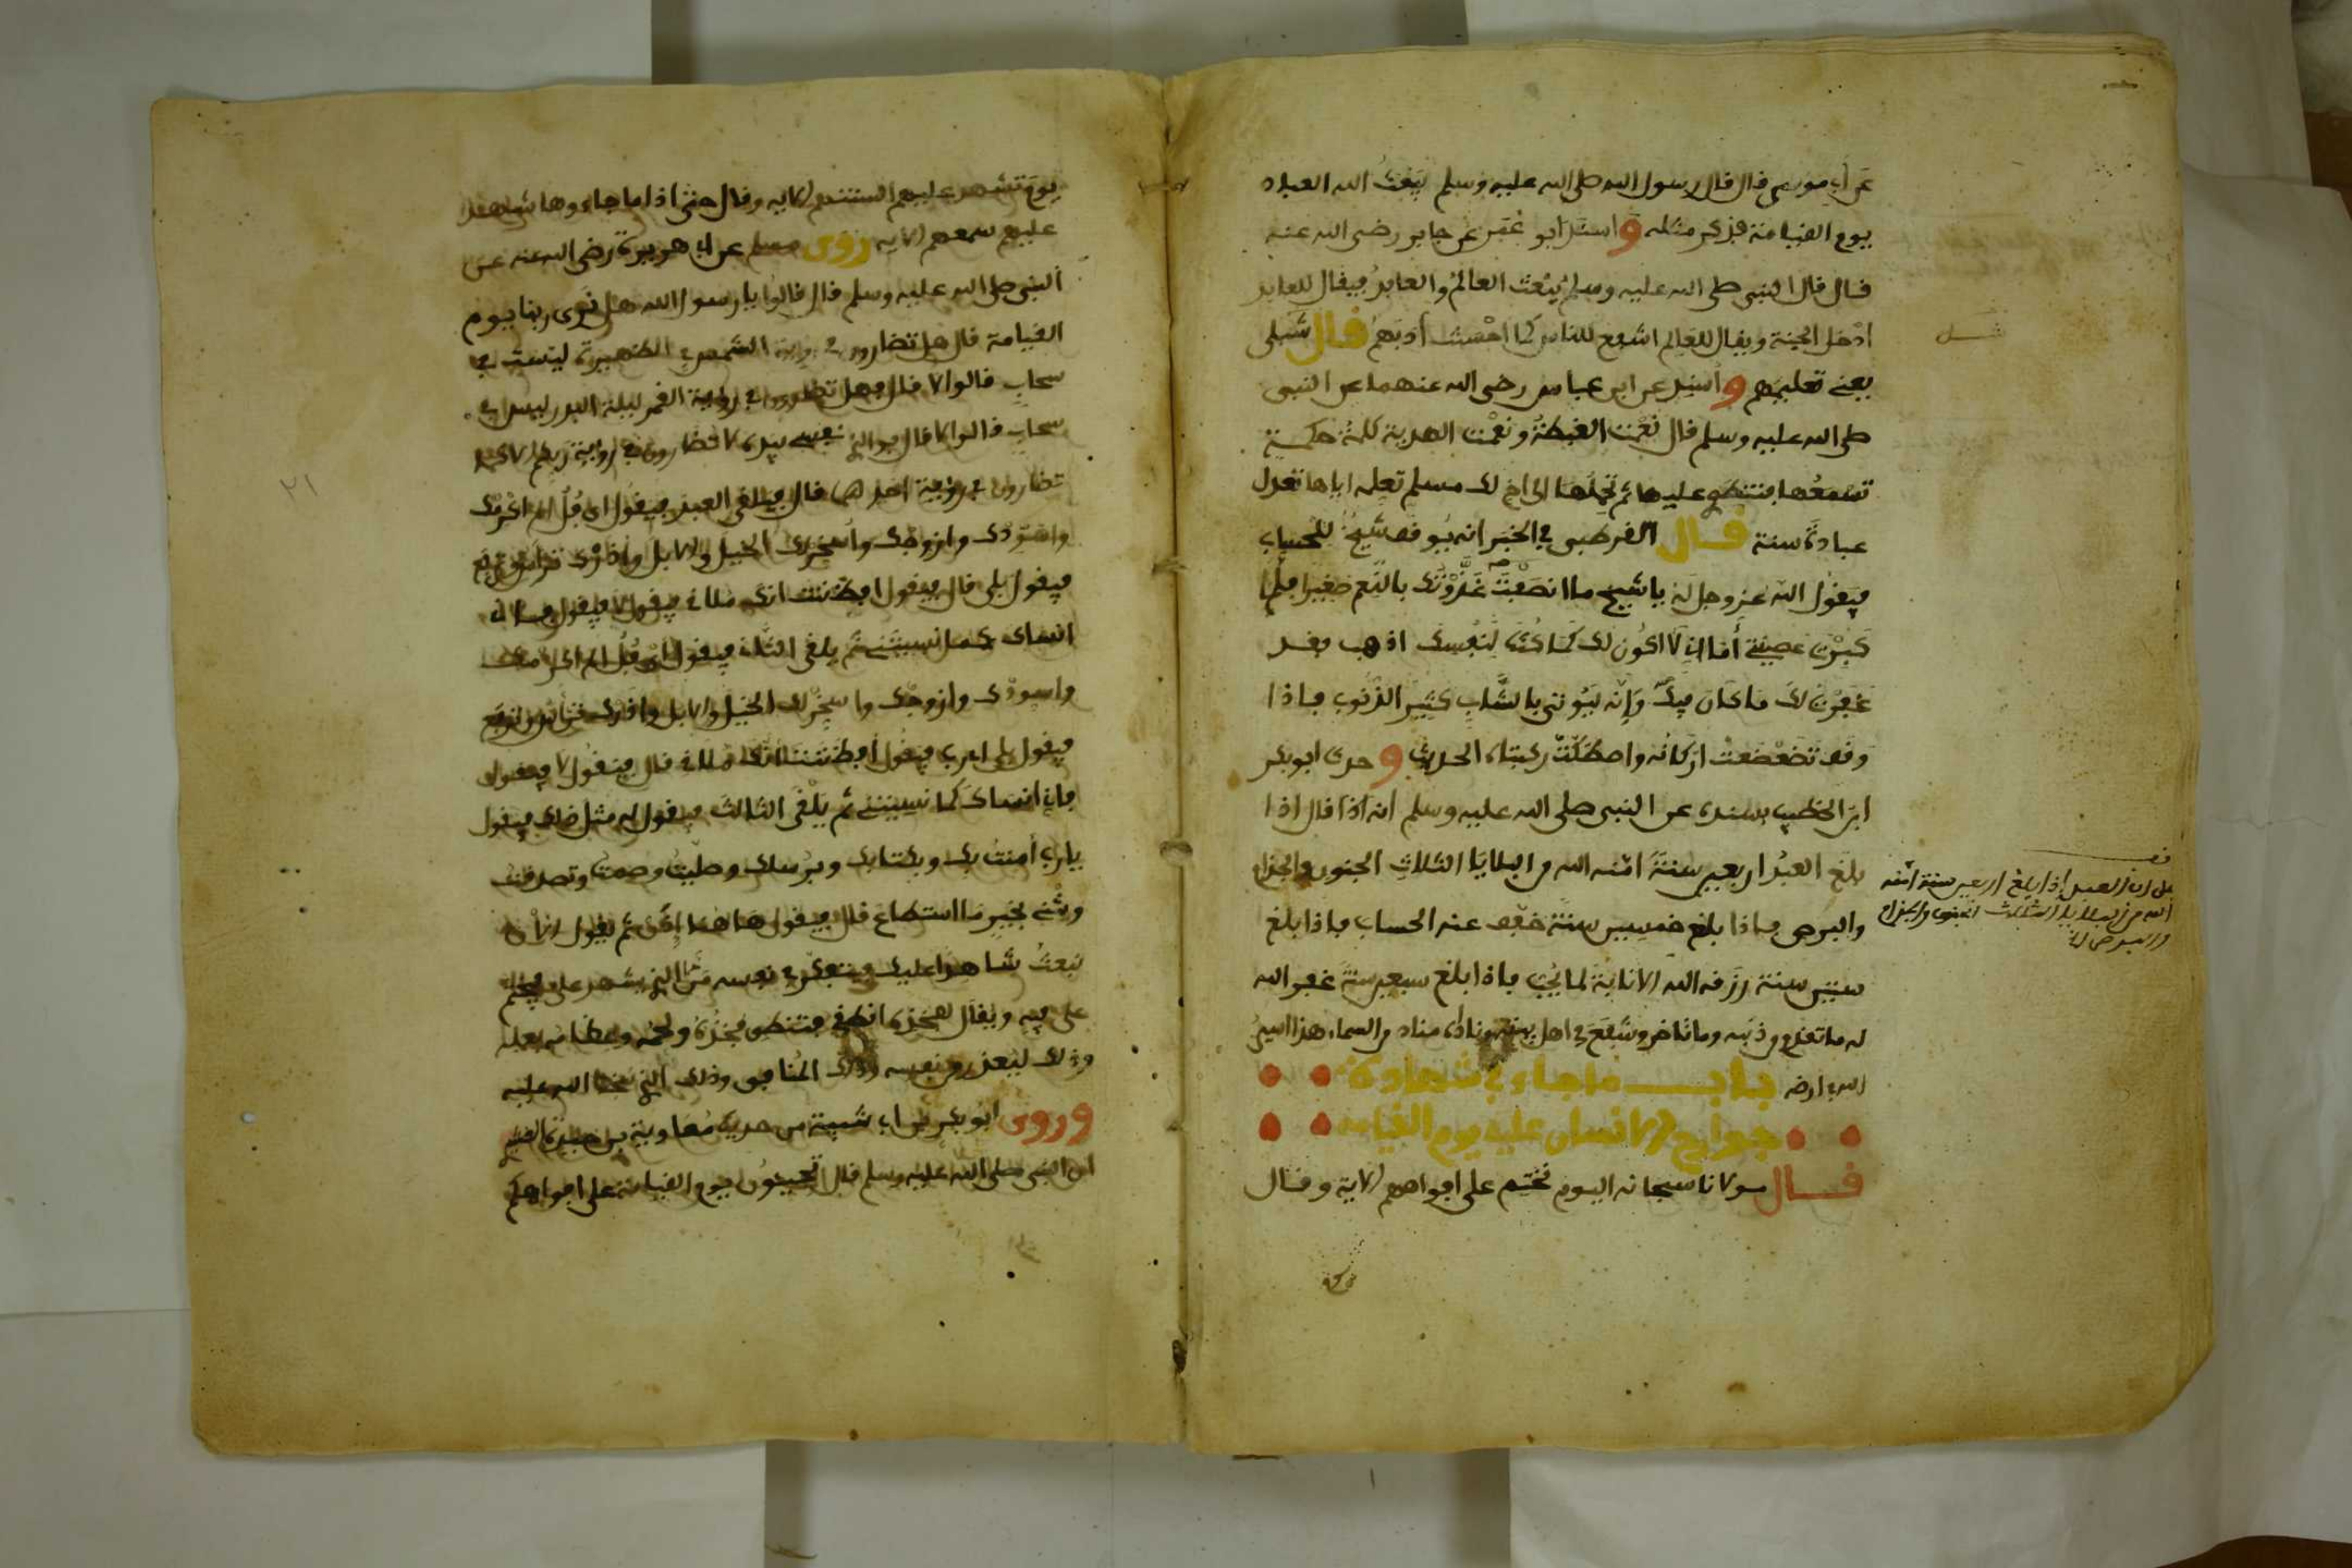 عن أبي موسى قال قال رسول الله صلى الله عليه وسلم يبعث الله العباد
يوم القيامة فذكر مثله واسند ابو عمر عن جابر رضي الله عنه
قال قال النبي صلى الله عليه وسلم يُبْعث العالمُ والعابدُ فيقال للعابد
ادْخل الجنة ويقال للعالم اشفع للناس كما احْسنت أدبَهم قال شبلى
شبل
يعني تعليمهم وأسند عن ابن عباس رضي الله عنهما عن النبي
صلى الله عليه وسلم قال نعْمت العطية ونعْمت الهدية كلمةُ حكمة
تسْمعُها فتنطوي عليها ثم تحملها الى اخ لك مسلم تعلمه اياها تعدل
عبادة سنة قال القرطبي في الخبر انه يُوقف شيخ للحساب
فيقول الله عز وجل له يا شيخ ما انصَفْتَ غذّوْتك بالنعم صغيرا فلما
كبرْتَ عصيتني أما اني لا اكون لك كما كنتَ لنفسك اذهب فقد
غفرْت لك ما كان فيك وَإنه ليُوتى بالشّاب كثيرَ الذنوب فإذا
وقف تضعْضعتْ أركانُه واصطكّتْ ركبتاه الحديث وخرج ابو بكر
ابن الخطيب بسنده عن النبي صلى الله عليه وسلم انه اذا قال اذا
بلغ العبْد اربعين سنةً امّنه الله من البلايا الثلاثِ الجنون والجذام
قف
على ان العبد إذا بلغ اربعين سنة امّنه
الله من البلايا الثلاث الجنون والجذام
والبرص الخ
والبرص فإذا بلغ خمسين سنة خفف عنه الحساب فإذا بلغ
ستين سنة رزقه الله الانابة لما يُحِبُّ فإذا بلغ سبعين سنة غفر الله
له ما تقدم من ذنبه وما تأخر وشُفِّعَ في اهل بيته وناداه مناد من السماء هذا اسيرُ
الله في ارضه باب ما جاء في شهادة
جوارح الانسان عليه يوم القيامة
قال مولانا سبحانه اليوم نختم على افواههم الاية وقال
يوم تشهد عليهم السنتهم الاية وقال حتى اذا ما جاءوها شهد
عليهم سمعهم الاية روى مسلم عن ابي هريرة رضي الله عنه عن
النبي صلى الله عليه وسلم قال قالوا يا رسول الله هل نرى ربنا يوم
القيامة قال هل تضارون في رؤية الشمس في الظهيرة ليست في
سحابٍ قالوا لا قال فهل تضارون في رؤية القمر ليلة البدر ليس في
سحاب قالوا لا قال فوالذي نفسي بيده لا تضارون في رؤية ربكم الا كما
تضارون في رؤية احدهما قال فيلقى العبد فيقول اي فُلُ الم اكْرمْك
واسَوّدك وازوجْك وأسخّرْ لك الخيل والابل وأذرْك ترأس وتربع
فيقول بلى قال فيقول افظننت انك ملاقي فيقول لا فيقول فاني
انساك كما نسيتني ثم يلقى الثاني فيقول اي فُلُ الم اكرمك
واسودْك وازوجْك واسخّرْ لك الخيل والابل واذرك ترأس وتربع
فيقول بلى اي رب فيقول أفظننت انك ملاقي قال فيقول لا فيقول
فاني انساك كما نسيتني ثم يلقى الثالث فيقول له مثل ذلك فيقول
يا رب أمنتُ بك وبكتابك وبرُسلك وصلّيْتُ وصمت وتصدقت
ويثني بخير ما استطاع قال فيقول هاهنا إذًن ثم يقول الآن
نبعثُ شاهدا عليك ويتفكر في نفسه مَن الذي يشهد علي فيختم
على فيه ويقال لفخذه انطقي فتنطق فخذُه ولحمُه وعظامه بعمله
وذلك ليعذر من نفسه وذلك المُنافق وذلك الذي سخط الله عليه
وروى ابو بكر بن ابي شيبة من حديث معاوية بن حيدة القشيري
ان النبي صلى الله عليه وسلم قال تجيئون يوم القيامة على افواهكم
٢١